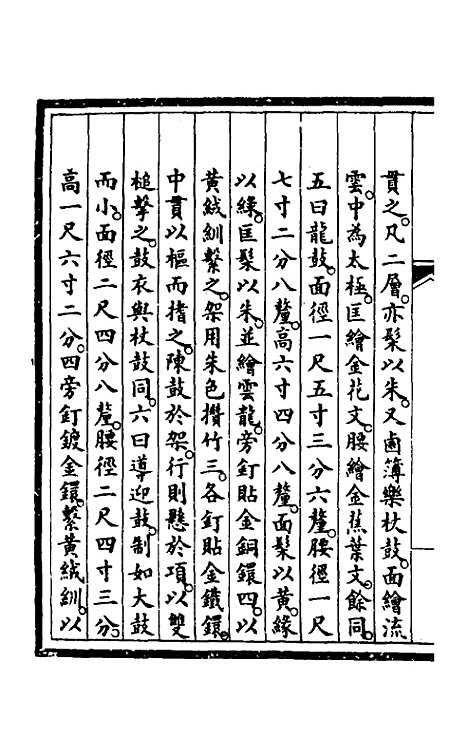 貫之。凡二層。亦髹以朱。又鹵簿樂杖鼓。面繪流
雲。中為太極。匡繪金花文。腰繪金蕉葉文。餘同。
五曰龍鼓。面徑一尺五寸三分六釐。腰徑一尺
七寸二分八釐。高六寸四分八釐。面髹以黃。緣
以綠。匡髹以朱。並繪雲龍。旁釘貼金銅鐶四。以
黃絨紃繫之。架用朱色攢竹三。各釘貼金鐵鐶。
中貫以樞而搘之。陳鼓於架。行則懸於項。以雙
槌擊之。鼓衣與杖鼓同。六曰導迎鼓。制如大鼓
而小。面徑二尺四分八釐。腰徑二尺四寸三分。
高一尺六寸二分。四旁釘鍍金鐶。繫黃絨紃。以